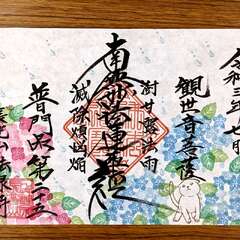 令和三年七月
観世音菩薩
澍甘露法雨
南無妙法蓮華経
滅除煩悩焔
普門品第二十五